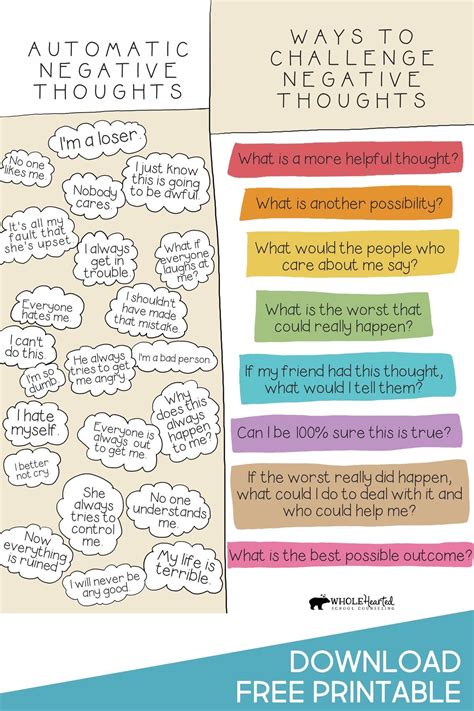 AUTOMATIC
NEGATIVE
THOUGHTS
I'm a loser.
No one
likes me.
Nobody
cares.
I just know
this is going
to be awful.
It's all my
fault that
she's upset.
I always
get in
trouble
What if
everyone
laughs at
me?
Everyone
hates me.
I shouldn't
have made
that mistake.
I can't
do this.
I'm so
dumb.
He always
tries to get
me angry.
I'm a bad person.
I hate
myself.
Everyone is
always out
to get me.
Why
does this
always
happen
to me?
I better
not cry
She
always
tries to
control
me.
No one
understands
me.
Now
everything
is ruined.
I will never be
any good.
My life is
terrible.
WAYS TO
CHALLENGE
NEGATIVE
THOUGHTS
What is a more helpful thought?
What is another possibility?
What would the people who
care about me say?
What is the worst that
could really happen?
If my friend had this thought,
what would I tell them?
Can I be 100% sure this is true?
If the worst really did happen,
what could I do to deal with it and
who could help me?
What is the best possible outcome?
WHOLEHearted
SCHOOL COUNSELING
DOWNLOAD
FREE PRINTABLE